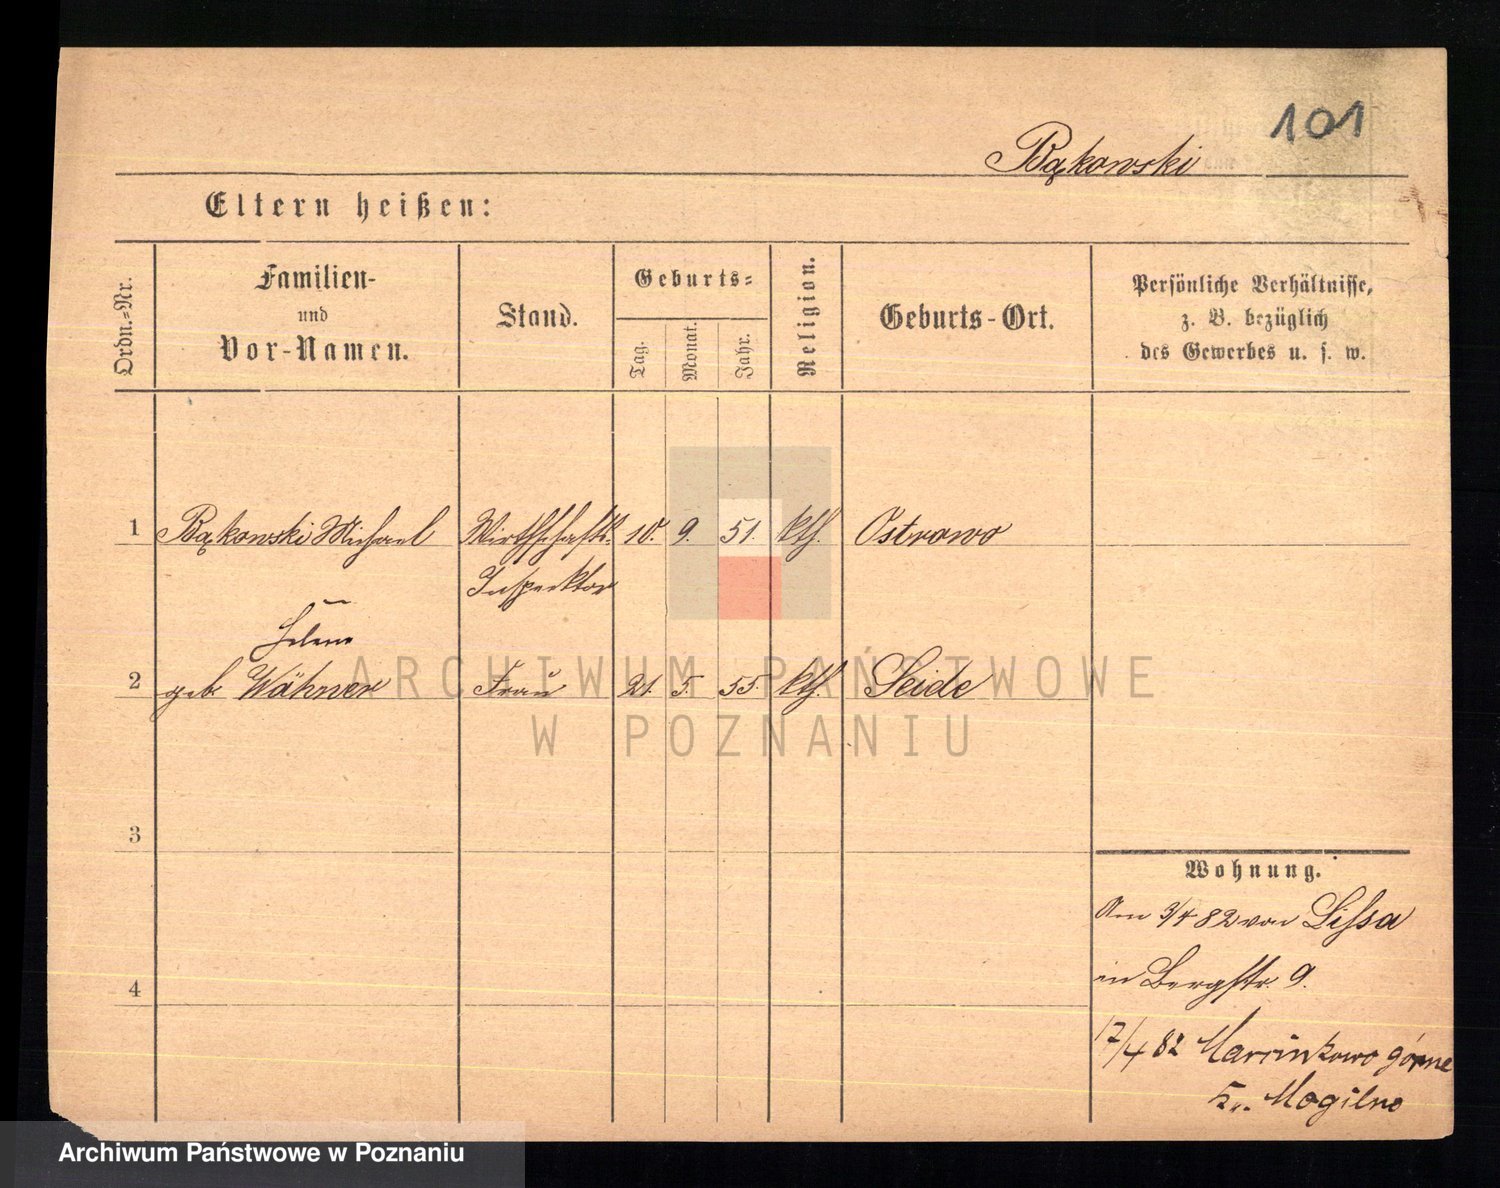 101
Bąkowski
Eltern heißen:
Ordn.-Nr.
Familien-
und
Vor-Namen.
Stand.
Geburts-
Tag.
Monat.
Jahr.
Religion.
Geburts-Ort.
Persönliche Verhältnisse,
z. B. bezüglich
des Gewerbes u. s. w.
1 Bąkowski Michael Wirthschafts- 10. 9. 51. kth. Ostrowo
Inspektor
Helene
2 geb. Wähner Frau 21. 5. 55. kth. Seide
3
4
Wohnung.
Am 3/4 82 von Lissa
in Bergstr. 9.
17/4 82 Marcinkowo górne
Mogilno
ARCHIWUM PAŃSTWOWE
W POZNANIU
Archiwum Państwowe w Poznaniu